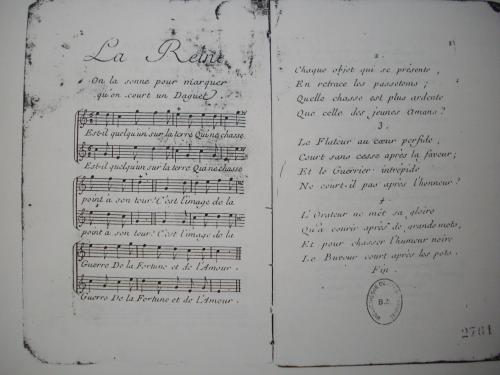 La Reine
On la sonne pour marquer
qu'on court un Daguet.
Est-il quelqu'un sur la terre Qui ne chasse
Est-il quelqu'un sur la terre Qui ne chasse
point à son tour? C'est l'image de la
point à son tour? C'est l'image de la
Guerre De la Fortune et de l'Amour.
Guerre De la Fortune et de l'Amour.
2
Chaque objet qui se présente,
En retrace les passetems;
Quelle chasse est plus ardente
Que celle des jeunes Amans?
3.
Le Flateur au cœur perfide,
Court sans cesse après la faveur;
Et le Guerrier intrépide
Ne court-il pas après l'honneur?
4
L'Orateur ne met sa gloire
Qu'à courir après de grands mots,
Et pour chasser l'humeur noire
Le Buveur court après les pots.
Fin.
2761